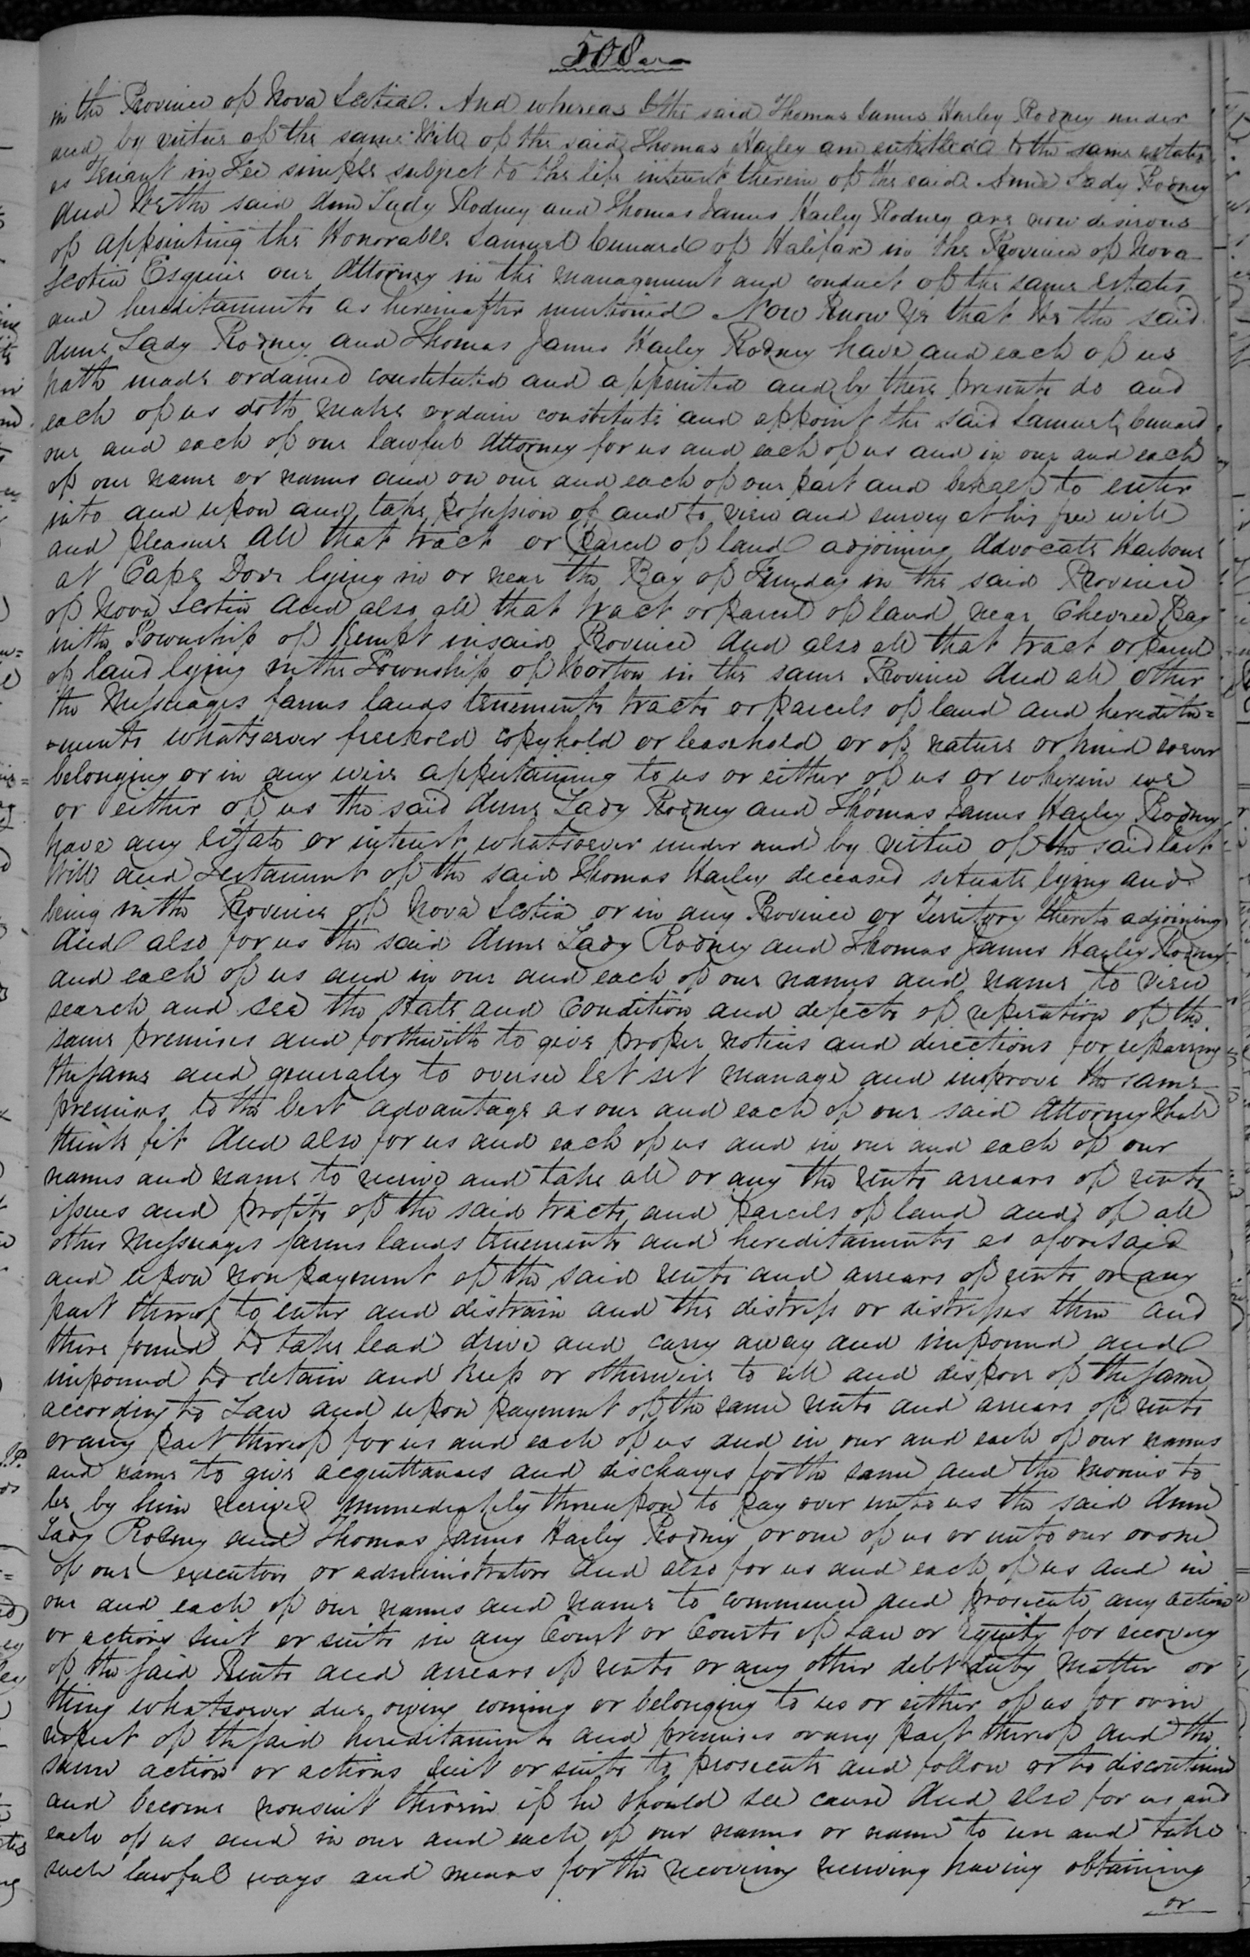 508
in the Province of Nova Scotia. And whereas I the said Thomas James Harley Rodney under
and by virtue of the same Will of the said Thomas Harley am entitled to the same estates
as Tenant in Fee simple subject to the life interest therein of the said Anne Lady Rodney
And We the said Anne Lady Rodney and Thomas James Harley Rodney are now desirous
of appointing the Honorable Samuel Cunard of Halifax in the Province of Nova
Scotia Esquire our Attorney in the management and conduct of the same estates
and hereditaments as hereinafter mentioned Now Know Ye that We the said
Anne Lady Rodney and Thomas James Harley Rodney have and each of us
hath made ordained constituted and appointed and by these presents do and
each of us doth make ordain constitute and appoint the said Samuel Cunard
our and each of our lawful Attorney for us and each of us and in our and each
of our name or names and on our and each of our part and behalf to enter
into and upon and take possession of and to view and survey at his free will
and pleasure All that tract or parcel of land adjoining Advocate Harbour
at Cape Dore lying in or near the Bay of Funday in the said Province
of Nova Scotia And also all that tract or parcel of land near Chevree Bay
in the Township of Kempt in said Province And also all that tract or parcel
of land lying in the Township of Horton in the same Province And all other
the Messuages farms lands tenements tracts or parcels of land and heredita=
=ments whatsoever freehold copyhold or leasehold or of nature or kind soever
belonging or in any wise appertaining to us or either of us or wherein we
or either of us the said Anne Lady Rodney and Thomas James Harley Rodney
have any Estate or interest whatsoever under and by virtue of the said last
Will and Testament of the said Thomas Harley deceased situate lying and
being in the Province of Nova Scotia or in any Province or Territory thereto adjoining
And also for us the said Anne Lady Rodney and Thomas James Harley Rodney
and each of us and in our and each of our names and name to view
search and see the state and Condition and defects of reparation of the
same premises and forthwith to give proper notices and directions for repairing
the same and generally to oversee let set manage and improve the same
premises to the best advantage as our and each of our said Attorney shall
think fit And also for us and each of us and in our and each of our
names and name to receive and take all or any the rents arrears of rents
issues and profits of the said tracts and parcels of land and of all
other Messuages farms lands tenements and hereditaments as aforesaid
and upon nonpayment of the said rents and arrears of rents or any
part thereof to enter and distrain and the distress or distresses then and
there found to take lead drive and carry away and impound and
impound to detain and keep or otherwise to sell and dispose of the same
according to Law and upon payment of the same rents and arrears of rents
or any part thereof for us and each of us and in our and each of our names
and name to give acquittances and discharges for the same and the monies to
be by him received immediately thereupon to pay over unto us the said Anne
Lady Rodney and Thomas James Harley Rodney or one of us or unto our or one
of our executors or administrators And also for us and each of us and in
our and each of our names and name to commence and prosecute any action
or actions suit or suits in any Court or Courts of Law or Equity for recovery
of the said Rents and arrears of rents or any other debt duty matter or
thing whatsoever due owing coming or belonging to us or either of us for or in
respect of the said hereditaments and premises or any part thereof and the
same action or actions suit or suits to prosecute and follow or to discontinue
and become nonsuit therein if he should see cause And also for us and
each of us and in our and each of our names or name to use and take
such lawful ways and means for the recovering receiving having obtaining
or